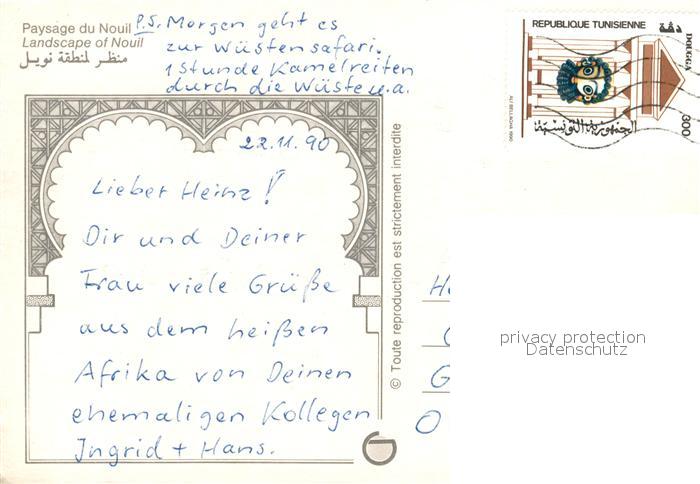 Paysage du Nouil
Landscape of Nouil
منظر لمنطقة نويل
P.S. Morgen geht es
zur Wüstensafari.
1 Stunde Kamelreiten
durch die Wüste u.a.
REPUBLIQUE TUNISIENNE
دقة
DOUGGA
300
ALI BELLAGHA 1990
الجمهورية التونسية
22.11.90
Lieber Heinz!
Dir und Deiner
Frau viele Grüße
aus dem heißen
Afrika von Deinen
ehemaligen Kollegen
Ingrid + Hans.
© Toute reproduction est strictement interdite
privacy protection
Datenschutz